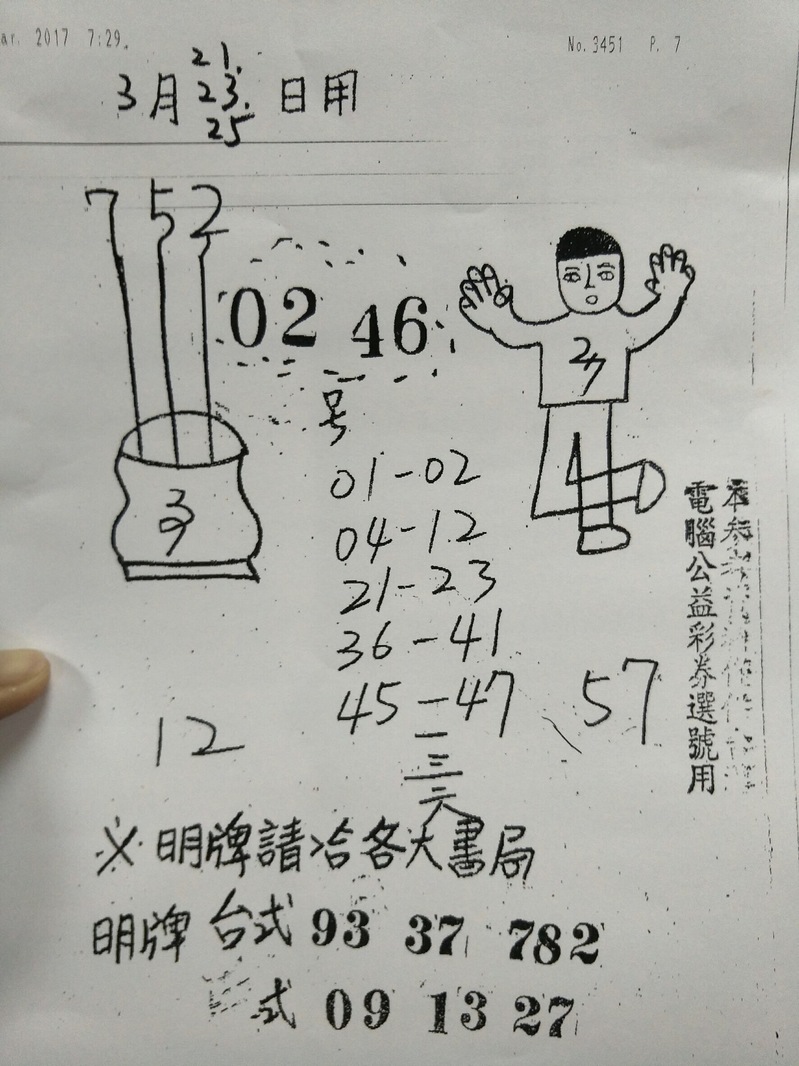 ar. 2017 7:29.
No. 3451 P. 7
3月 21. 23. 25 日用
7 5 2
02 46
号
27
01-02
04-12
21-23
36-41
45-47
一三六
12
57
電腦公益彩券選號用
※明牌請洽各大書局
明牌 台式 93 37 782
式 09 13 27